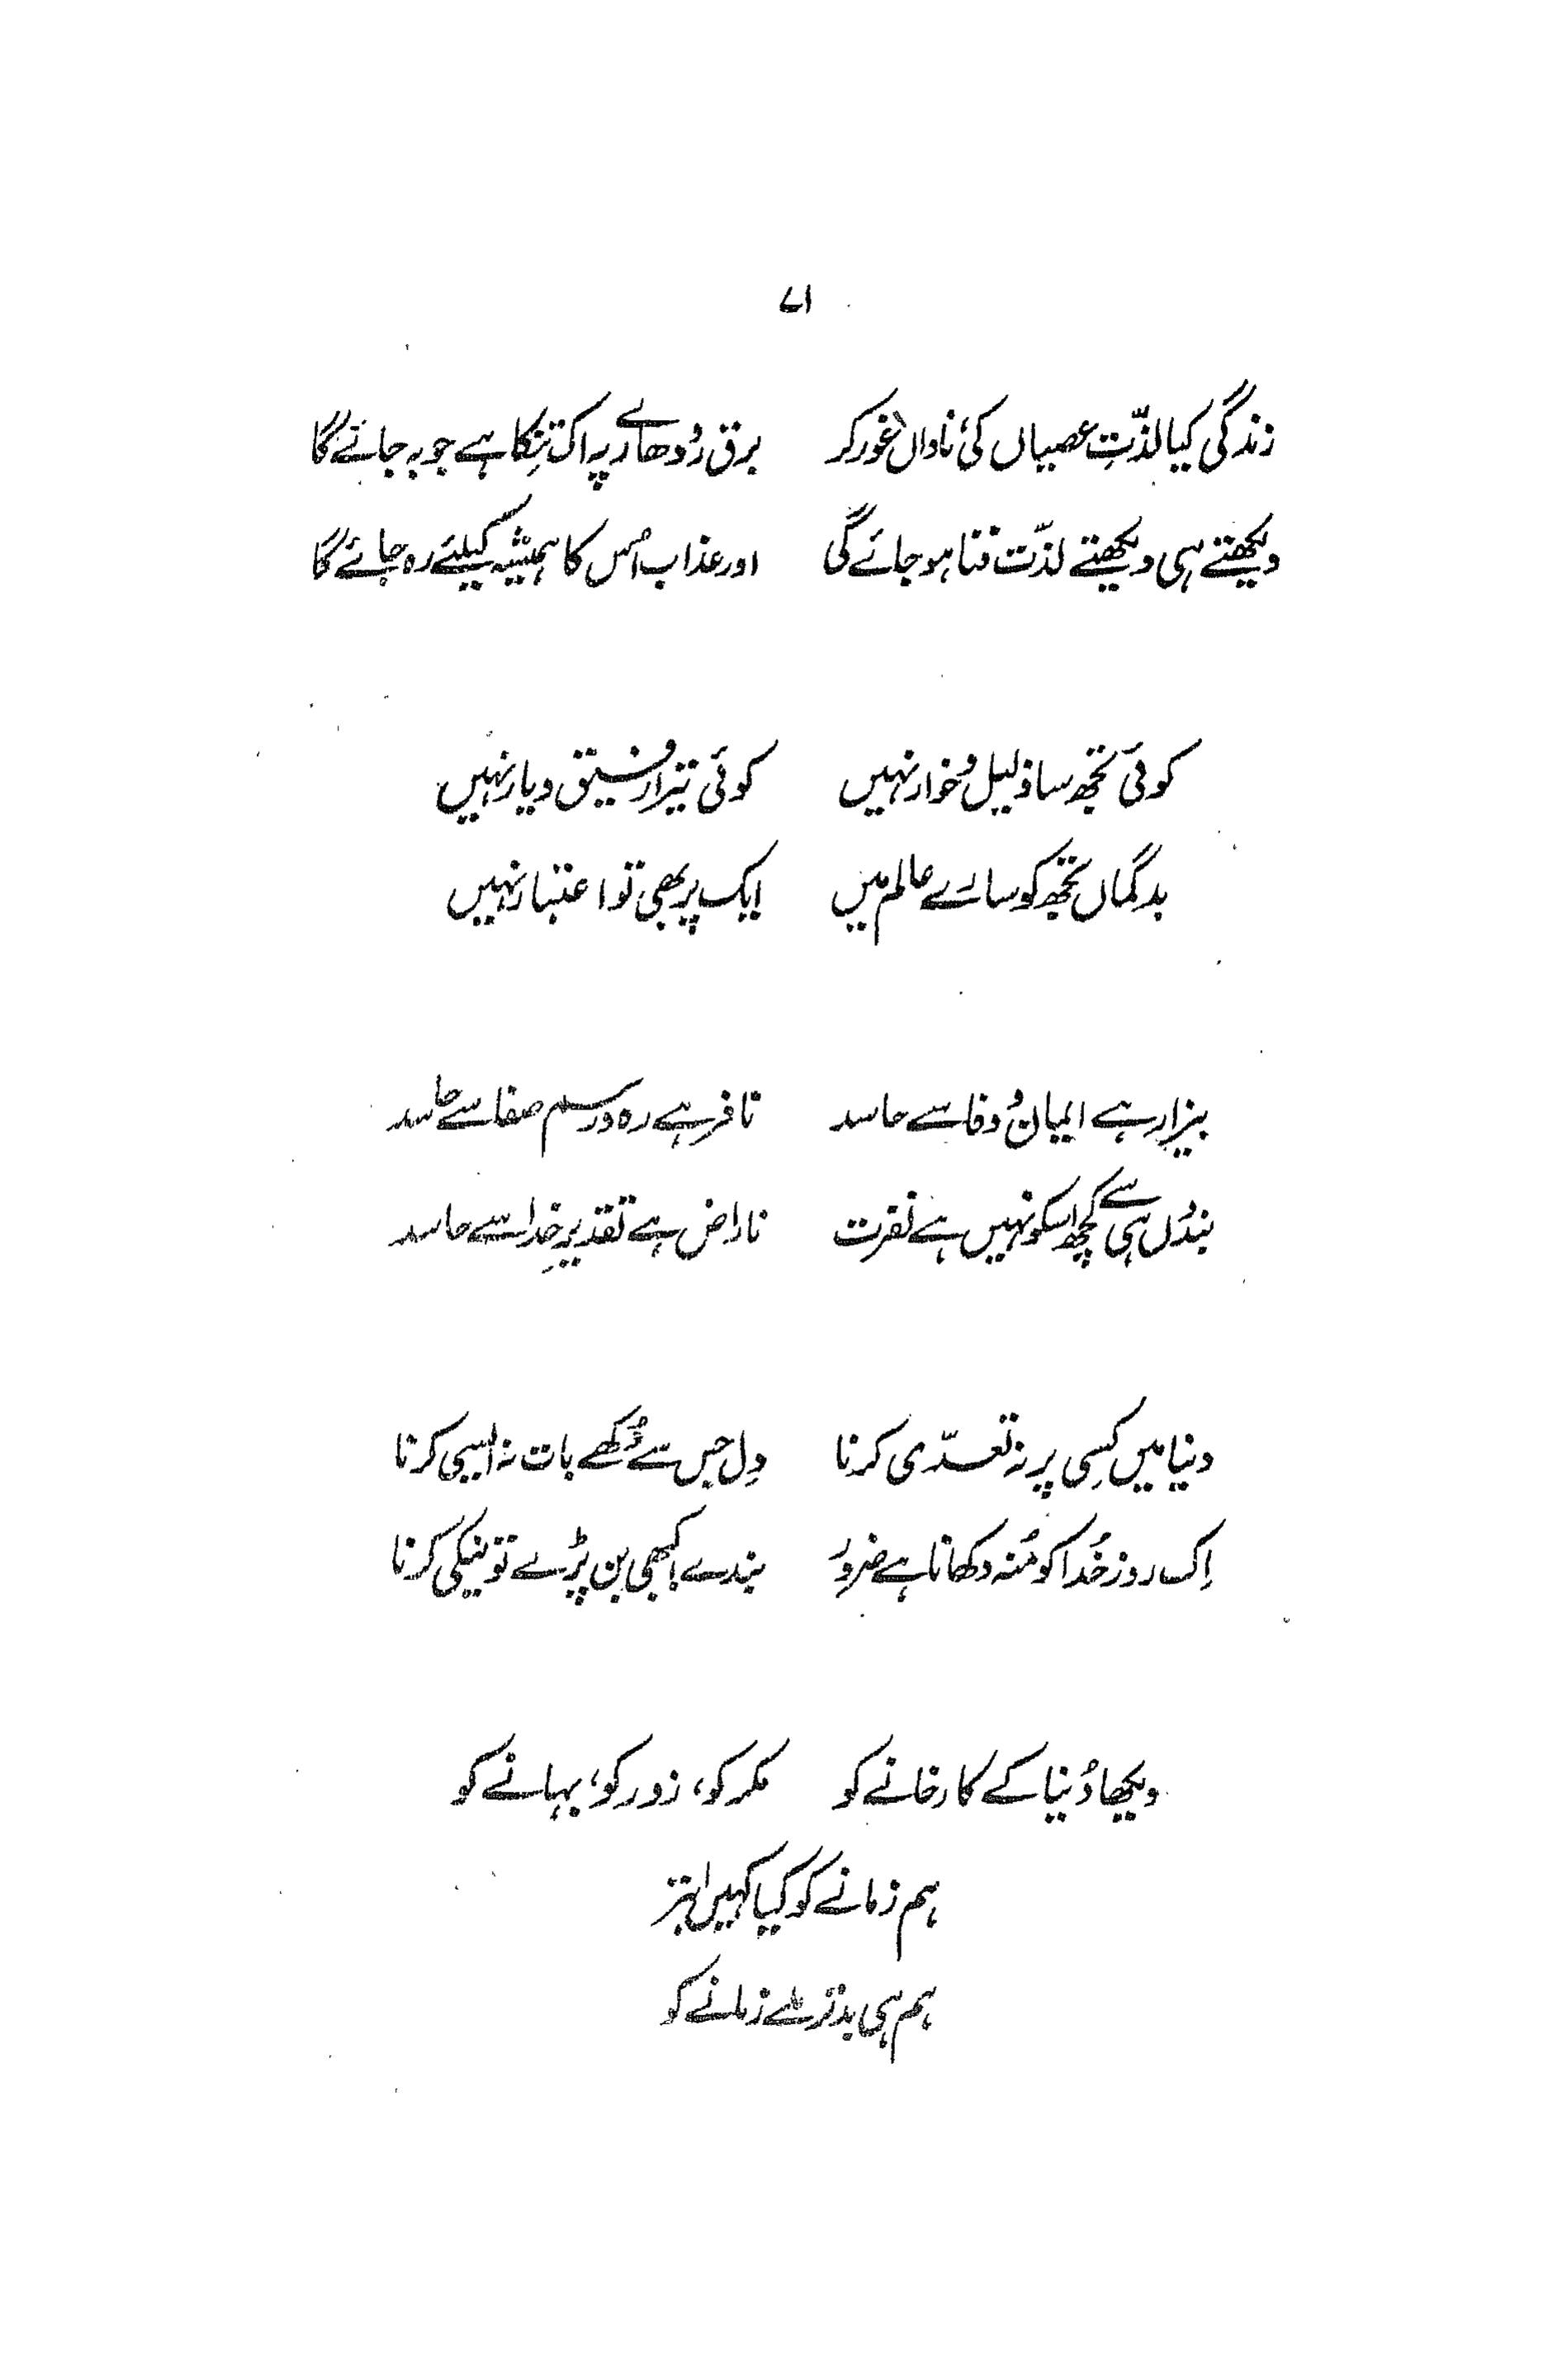 ۷۱
زندگی کیا لذّتِ عصیاں کی ناداں غور کر برق رَو دھارے پہ اک تِنکا ہے جو بہ جائے گا
دیکھتے ہی دیکھتے لذّت فنا ہو جائے گی اور عذاب اُس کا ہمیشہ کیلئے رہ جائے گا
کوئی تجھ سا ذلیل و خوار نہیں کوئی تیرا رفیق و یار نہیں
بدگماں تجھ کو سارے عالم میں ایک پر بھی تو اعتبار نہیں
بیزار ہے ایمان و وفا سے حاسد نافر ہے رہ و رسم صفا سے حاسد
بندوں ہی سے کچھ اسکو نہیں ہے نفرت ناراض ہے تقدیرِ خدا سے حاسد
دنیا میں کسِی پر نہ تعدّی کرنا دِل جس سے دُکھے بات نہ ایسی کرنا
اِک روز خُدا کو مُنہ دکھانا ہے ضرور بندے کبھی بن پڑے تو نیکی کرنا
دیکھا دُنیا کے کارخانے کو مکر کو، زور کو، بہانے کو
ہم زمانے کو کیا کہیں ابتر
ہم ہی بدتر ملے زمانے کو